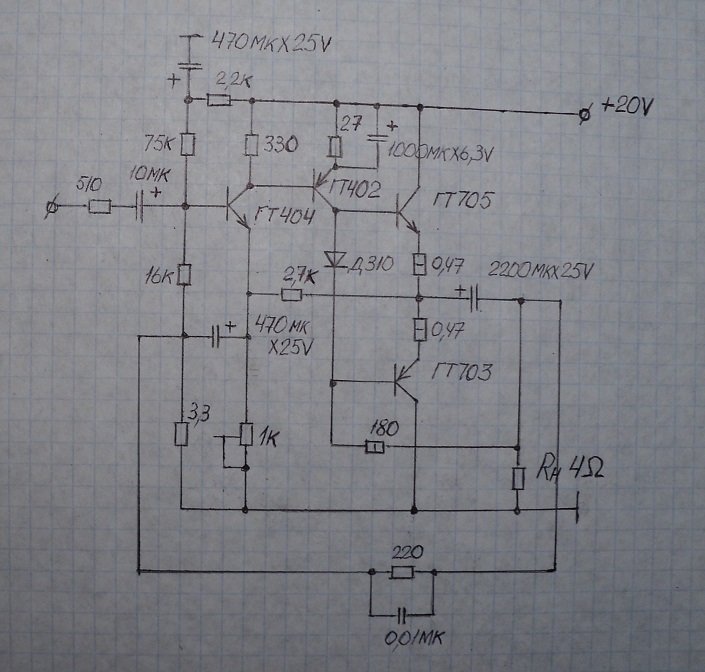 470МКХ25V
+
2,2К
+20V
75К
330
27
+
1000МКХ6,3V
510
10МК
+
ГТ402
ГТ404
ГТ705
16К
Д310
0,47
2200МКХ25V
2,7К
+
+
470МК
Х25V
0,47
ГТ703
3,3
1К
180
Rн 4Ω
220
0,01МК